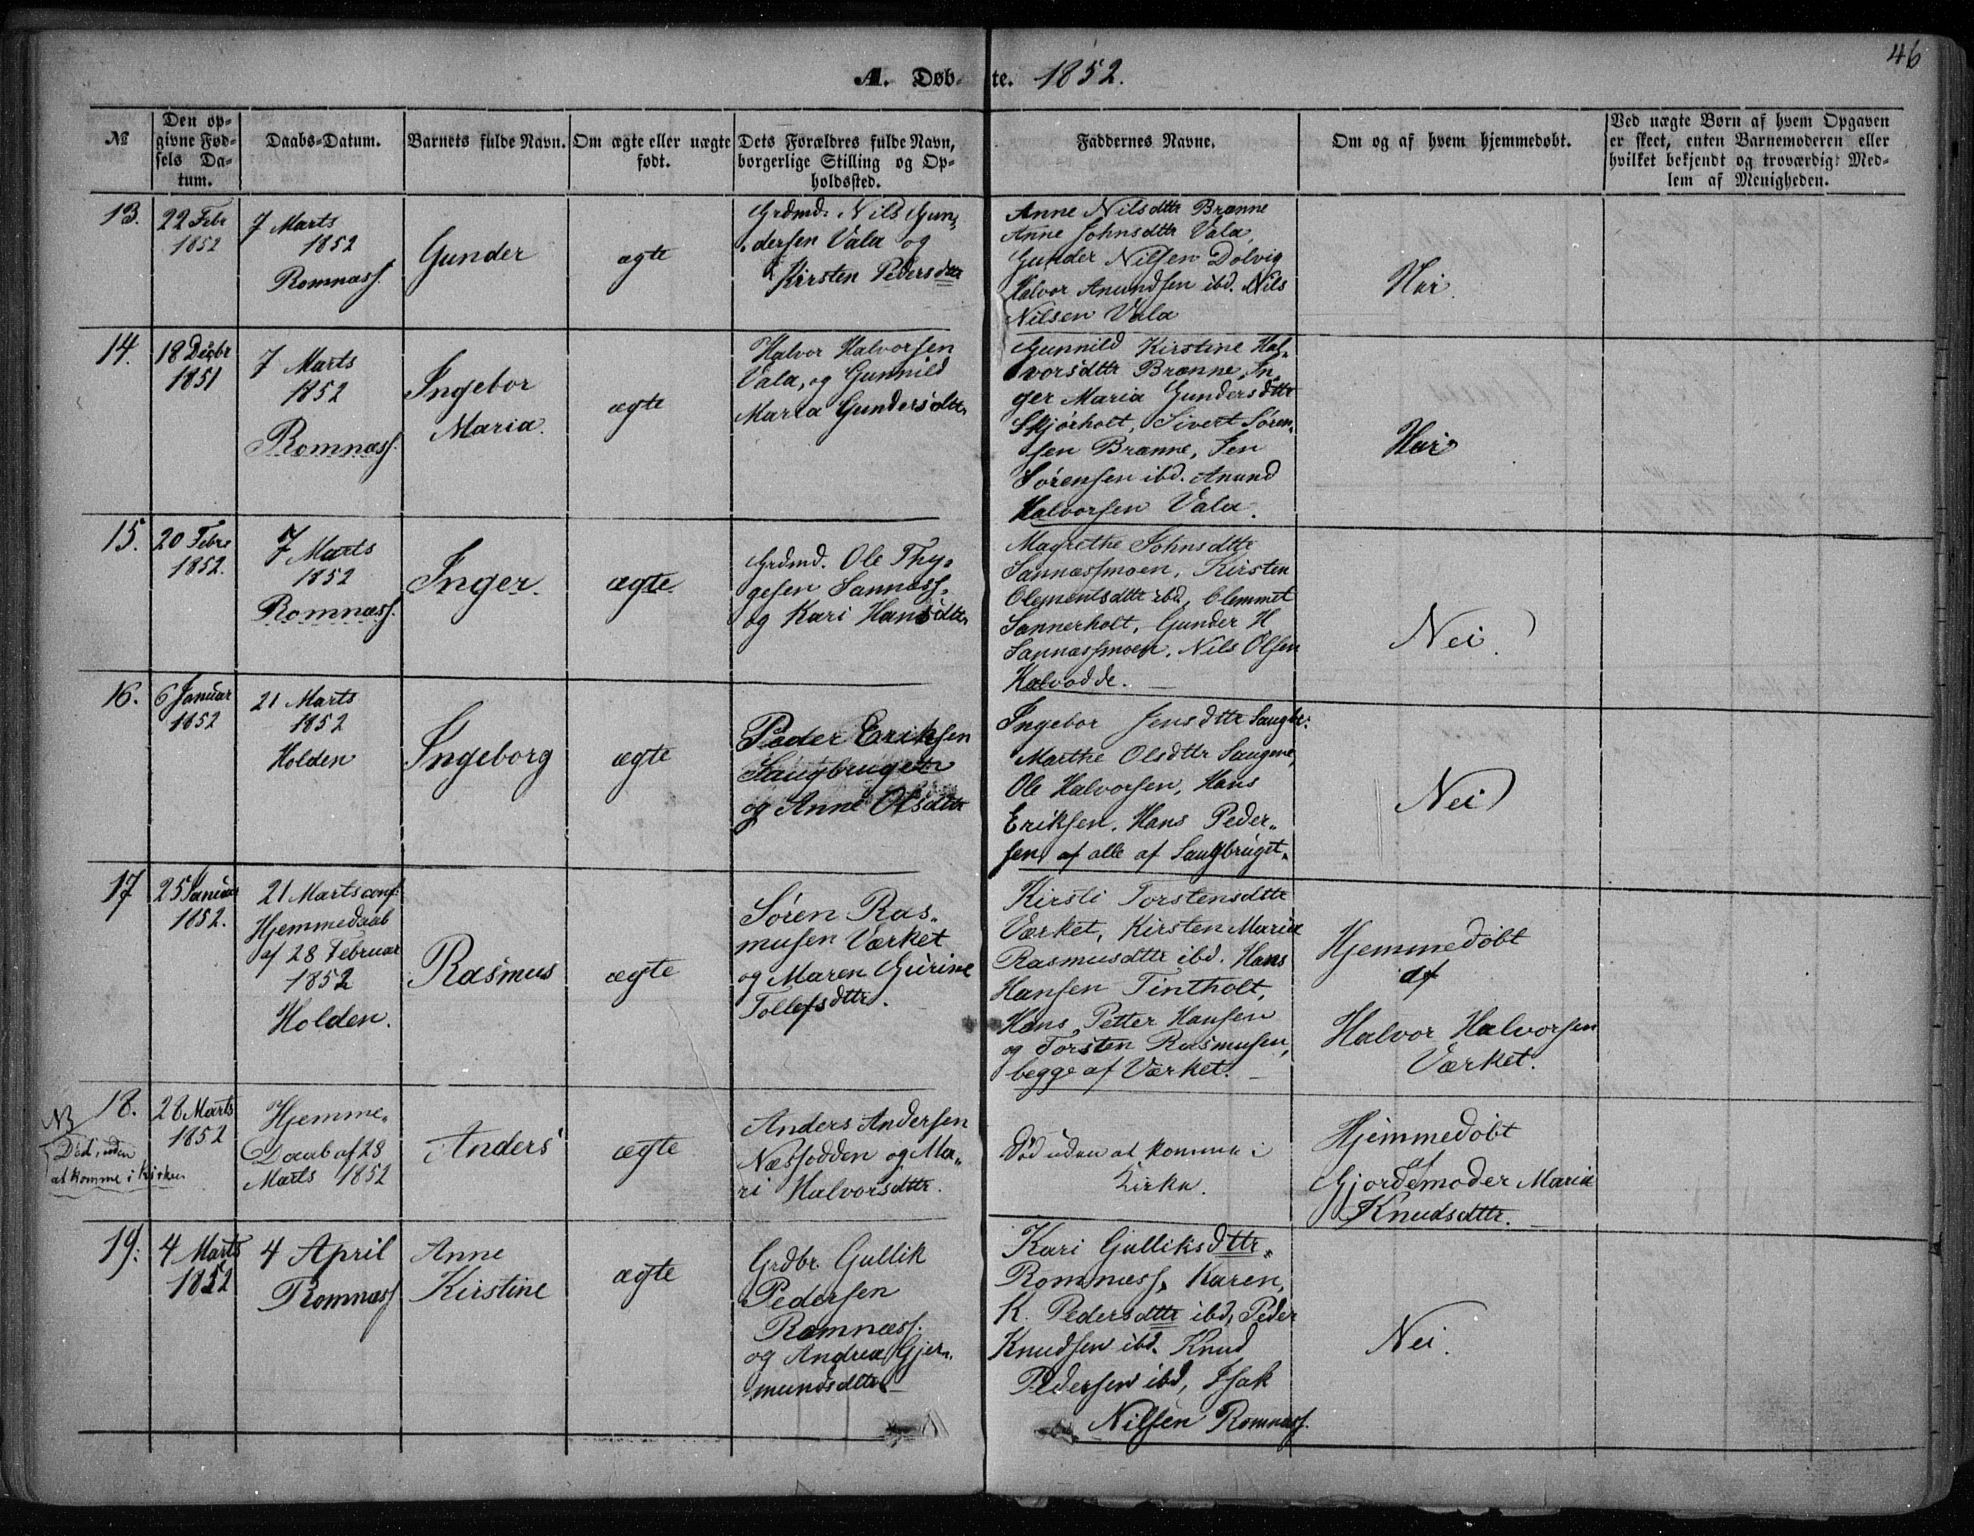 46
A. Døb- te. 1852.
№
Den op-
givne Fød-
sels Da-
tum.
Daabs-Datum.
Barnets fulde Navn.
Om ægte eller uægte
født.
Dets Forældres fulde Navn,
borgerlige Stilling og Op-
holdssted.
Faddernes Navne.
Om og af hvem hjemmedøbt.
Ved uægte Børn af hvem Opgaven
er skeet, enten Barnemoderen eller
hvilket bekjendt og troværdigt Med-
lem af Menigheden.
13.
22 Febr
1852
7 Marts
1852
Romnæss.
Gunder
ægte
Grdmd. Nils Gun-
dersen Vala og
Kirsten Pedersdttr
Anne Nilsdttr Brænne
Anne Johnsdttr Vala,
Gunder Nilsen Dolvig
Halvor Anundsen ibd. Nils
Nilsen Vala
Nei.
14.
18 Decbr
1851
7 Marts
1852
Romnæss.
Ingebor
Maria.
ægte
Halvor Halvorsen
Vala, og Gunnild
Maria Gundersdttr.
Gunnild Kirstine Hal-
vorsdttr Brænne, In-
ger Maria Gundersdttr
Skjørholt, Sivert Søren-
sen Brænne, Jen
Sørensen ibd. Anund
Halvorsen Vala.
Nei
15.
20 Febr
1852.
7 Marts
1852
Romnæss.
Inger.
ægte.
Grdmd. Ole Thy-
gesen Sannæss.
og Kari Hansdttr.
Magrethe Johnsdttr
Sannæssmoen, Kirsten
Clementsdttr ibd, Clemmet
Sannerholt, Gunder H
Sannæssmoen, Nils Olsen
Kalvodde.
Nei.
16.
6 Januar
1852
21 Marts
1852
Holden
Ingeborg
ægte
Peder Eriksen
Saugbruget
og Anne Olsdttr
Ingebor Jensdttr Saugbr.
Marthe Olsdttr Saugene,
Ole Halvorsen, Hans
Eriksen, Hans Peder-
sen, af alle af Saugbruget.
Nei
17
25 Januar
1852.
21 Marts conf.
Hjemmedaab
af 28 Februar
1852
Holden.
Rasmus
ægte
Søren Ras-
musen Værket
og Maren Gurine
Tollefsdttr.
Kirsti Torstensdttr
Værket, Kirsten Maria
Rasmusdttr ibd. Hans
Hansen Tintholt,
Hans Petter Hansen
og Torsten Rasmusen,
begge af Værket.
Hjemmedøbt
af
Halvor Halvorsen
Værket.
18.
NB
Død, uden
at komme i Kirken
28 Marts
1852
Hjemme-
Daab af 28
Marts 1852
Anders
ægte
Anders Andersen
Næssodden og Ma-
ri Halvorsdttr.
Død uden at komme i
Kirke.
Hjemmedøbt
af
Gjordemoder Maria
Knudsdttr.
19.
4 Marts
1852
4 April
Romnæss
Anne
Kirstine
ægte
Grdbr. Gullik
Pedersen
Romnæss.
og Andrea Gjer-
mundsdttr
Kari Gulliksdttr.
Romnæss, Karen,
K. Pedersdttr ibd, Peder
Knudsen ibd. Knud
Pedersen ibd, Isak
Nilsen Romnæss.
Nei.